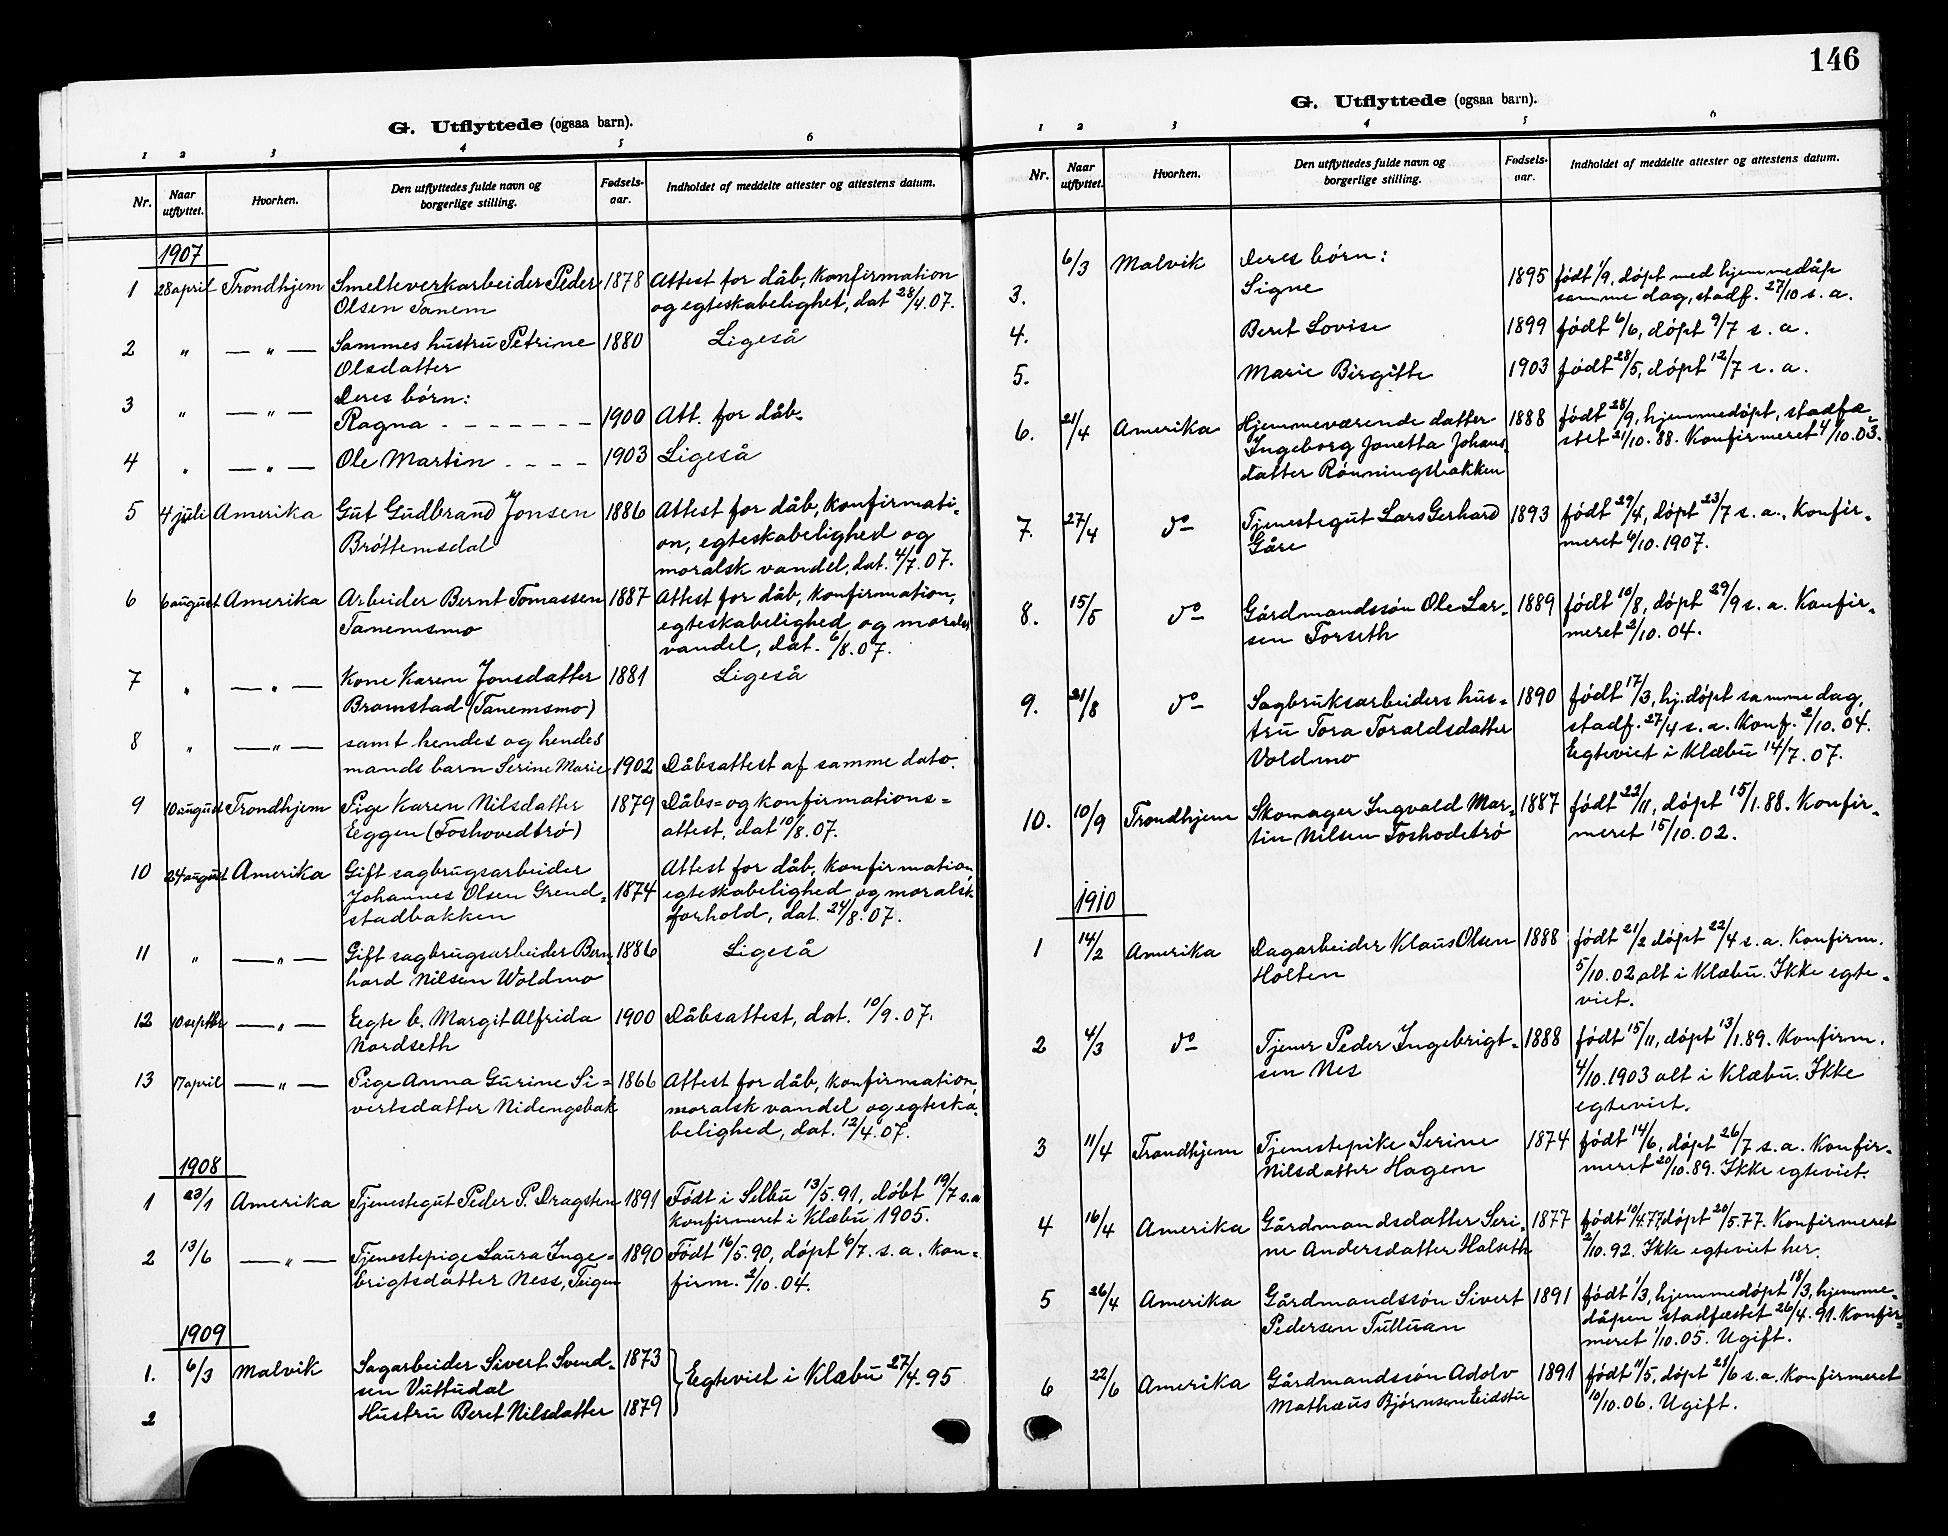 G. Utflyttede (ogsaa barn).
1 2 3 4 5 6
Nr. Naar utflyttet. Hvorhen. Den utflyttedes fulde navn og borgerlige stilling. Fødsels-aar. Indholdet af meddelte attester og attestens datum.
1907
1 28 april Trondhjem Smelteverkarbeider Peder 1878 Attest for dåb, konfirmation
Olsen Tanem og egteskabelighet, dat 28/4.07.
2 " — " — Sammes hustru Petrine 1880 Ligeså
Olsdatter
Deres børn:
3 " — " — Ragna - - - - - - - 1900 Att. for dåb.
4 " — " — Ole Martin - - - - 1903 Ligeså
5 4 juli Amerika Gut Gudbrand Jonsen 1886 Attest for dåb, konfirmati-
Brøttemsdal on, egteskabelighed og
moralsk vandel, dat. 4/7.07.
6 6 august Amerika Arbeider Bernt Tomassen 1887 Attest for dåb, konfirmation,
Tanemsmo egteskabelighed og moralsk
vandel, dat. 6/8.07.
7 " — " — Kone Karen Jonsdatter 1881 Ligeså
Bromstad (Tanemsmo)
8 " — " — samt hendes og hendes
mands barn Serine Marie 1902 Dåbsattest af samme dato.
9 10 august Trondhjem Pige Karen Nilsdatter 1879 Dåbs= og konfirmations=
Eggen (Foshovedtrø) attest, dat 10/8.07.
10 24 august Amerika Gift sagbrugsarbeider Attest for dåb, konfirmation
Johannes Olsen Grend= 1874 egteskabelighed og moralsk
stadbakken forhold, dat. 24/8.07.
11 " — " — Gift sagbrugsarbeider Bern 1886 Ligeså
hard Nilsen Woldmo
12 10 septbr — " — Egte b. Margit Alfrida 1900 Dåbsattest, dat. 10/9.07.
Nordseth
13 17 april — " — Pige Anna Gurine Si= 1866 Attest for dåb, konfirmation
vertsdatter Nidengsbak moralsk vandel og egteska
belighed, dat. 12/4.07.
1908
1 23/1 Amerika Tjenestegut Peder P. Dragsten 1891 Født i Selbu 13/5.91, døbt 19/7 s.a
konfirmeret i Klæbu 1905.
2 13/6 — " — Tjenestepige Laura Inge= 1890 Født 16/5.90, døpt 6/7. s. a. kon-
brigtsdatter Ness, Teigen firm. 2/10.04.
1909
1. 6/3 Malvik Sagarbeider Sivert Svend= 1873 } Egteviet i Klæbu 27/4.95
sen Vuttudal
2 Hustru Beret Nilsdatter 1879
146
G. Utflyttede (ogsaa barn).
1 2 3 4 5 6
Nr. Naar utflyttet. Hvorhen. Den utflyttedes fulde navn og borgerlige stilling. Fødsels-aar. Indholdet af meddelte attester og attestens datum.
6/3 Malvik Deres børn:
3. Signe 1895 født 1/9, døpt ved hjemmedåp
samme dag, stadf. 27/10 s. a.
4. Beret Lovise 1899 født 6/6, døpt 9/7 s. a.
5. Marie Birgitte 1903 født 28/5, døpt 12/7 s. a.
6. 21/4 Amerika Hjemmeværende datter 1888 født 28/9, hjemmedøpt, stadfæ-
Ingeborg Jonetta Johans- stet 21/10.88. Konfirmeret 4/10.03.
datter Rønningsbakken
7. 27/4 do Tjenestegut Lars Gerhard 1893 født 29/4, døpt 23/7 s. a., Konfir-
Gåre meret 6/10.1907.
8. 15/5 do Gårdmandssøn Ole Lar- 1889 født 10/8, døpt 29/9 s. a. Konfir-
sen Forseth meret 2/10.04.
9. 21/8 do Sagbruksarbeiders hus= 1890 født 17/3, hj. døpt samme dag,
tru Tora Toraldsdatter stadf. 27/4 s. a. Konf. 2/10.04.
Voldmo Egteviet i Klæbu 14/7.07.
10. 10/9 Trondhjem Skomager Ingvald Mar- 1887 født 22/11, døpt 15/1.88. Konfir-
tin Nilsen Foshodetrø meret 15/10.02.
1910
1 14/2 Amerika Dagarbeider Klaus Olsen 1888 født 21/2 døpt 22/4 s. a. Konfirm.
Holten 5/10.02 alt i Klæbu. Ikke egte-
viet.
2 4/3 do Tjener Peder Ingebrigt- 1888 født 15/11, døpt 13/1.89. Konfirm.
sen Nes 4/10.1903 alt i Klæbu. Ikke
egteviet.
3 11/4 Trondhjem Tjenestepike Serine 1874 født 14/6, døpt 26/7 s. a. Konfir-
Nilsdatter Hagen meret 20/10.89. Ikke egteviet.
4 16/4 Amerika Gårdmandsdatter Seri- 1877 født 10/4.77, døpt 20/5.77. Konfirmeret
ne Andersdatter Halseth 2/10.92. Ikke egteviet her.
5 26/4 Amerika Gårdmandssøn Sivert 1891 født 1/3, hjemmedøpt 18/3, hjemme-
Pedersen Tulluan dåpen stadfæstet 26/4.91. Konfir-
meret 1/10.05. Ugift.
6 22/6 Amerika Gårdmandssøn Adolv 1891 født 11/5, døpt 28/6 s. a. Konfirmeret
Mathæus Bjørnsen Eidstu 10/10.06. Ugift.